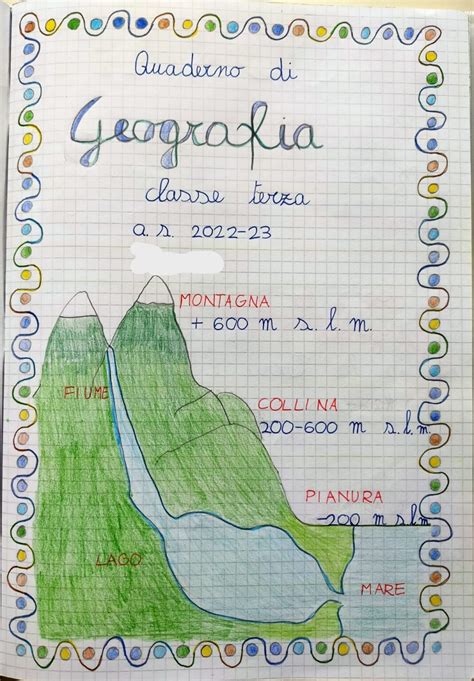 Quaderno di
Geografia
classe terza
a.s. 2022-23
MONTAGNA
+ 600 m s.l.m.
FIUME
COLLINA
200-600 m s.l.m.
PIANURA
-200 m s.l.m
LAGO
MARE